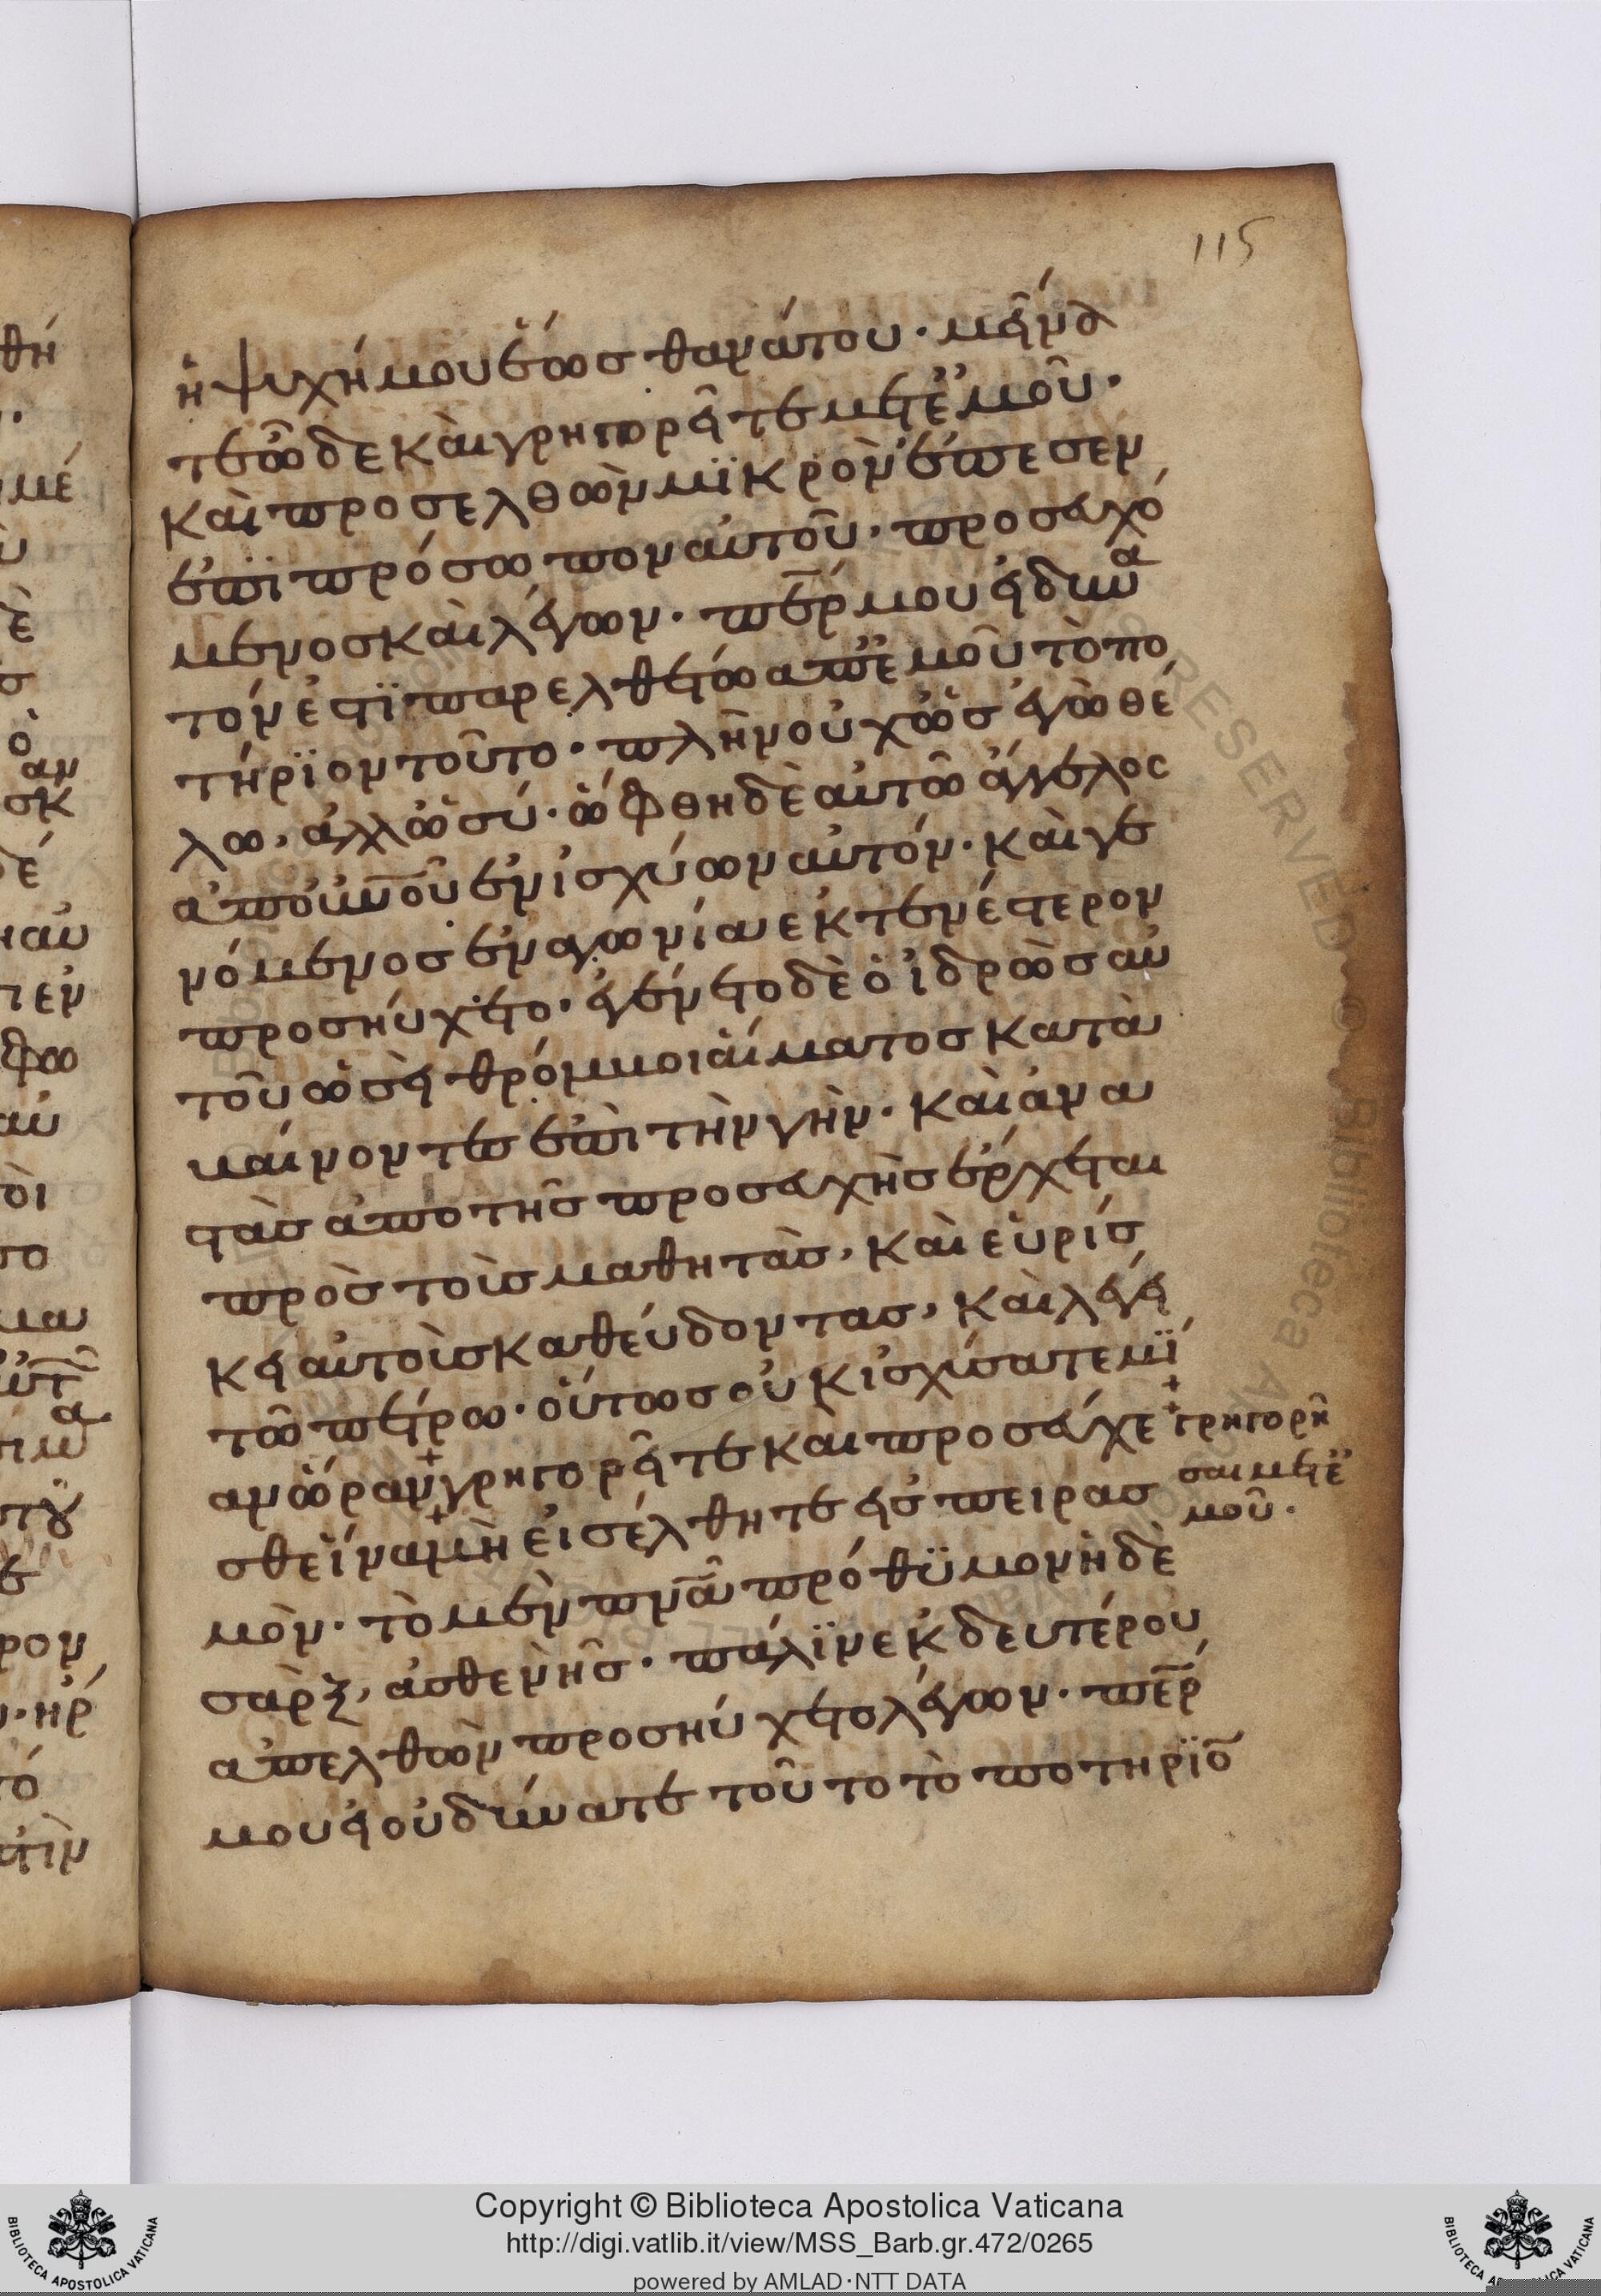 115
ἡ ψυχή μου ἕως θανάτου· μείνα
τε ὧδε καὶ γρηγορεῖτε μετ ἐμοῦ·
καὶ προσελθὼν μϊκρὸν ἔπεσεν
ἐπϊ πρόσωπον αὐτοῦ, προσευχό
μενος καὶ λέγων· πέρ μου εἰ δυνα
τόν ἐστϊ παρελθέτω απ ἐμοῦ τὸ πο
τήρϊον τοῦτο· πλὴν οὐχ ὡς ἐγὼ θέ
λω, ἀλλ ὡς σύ· ὤφθη δὲ αὐτῶ ἄγγελος
ἀπο οὐνοῦ ἐνισχύων αὐτόν· καὶ γε
νόμενος ἐν αγωνία ἐκτενέστερον
προσηύχετο· ἐγένετο δὲ ὁ ἱδρὼς αὐ
τοῦ ὡσεὶ θρόμμοι αἵματος κατα
βαίνοντες ἐπὶ τὴν γὴν· καὶ ἀνα
στὰς ἀπο τῆς προσευχὴς ἔρχεται
πρὸς τοὺς μαθητὰς, καὶ εὑρίσ
κει αὐτοὺς καθεύδοντας, καὶ λέγει
τῶ πέτρω· οὕτως οὐκ ἰσχύσατε μϊ
αν ὥραν γρηγορεῖτε καὶ προσεύχε
γρηγορῆ
σαι μετ ἐ
μοῦ·
σθε ἵνα μὴ εἰσέλθητε εἰς πειρας
μὸν· τὸ μὲν πνᾶ πρόθϋμον ἡ δὲ
σὰρξ, ἀσθενὴς· πάλϊν ἐκ δευτέρου
ἀπελθὼν προσηύχετο λέγων· πέρ
μου εἰ οὐ δύναται τοῦτο τὸ ποτηρϊο
Copyright © Biblioteca Apostolica Vaticana
http://digi.vatlib.it/view/MSS_Barb.gr.472/0265
powered by AMLAD·NTT DATA
BIBLIOTECA APOSTOLICA VATICANA
BIBLIOTECA APOSTOLICA VATICANA